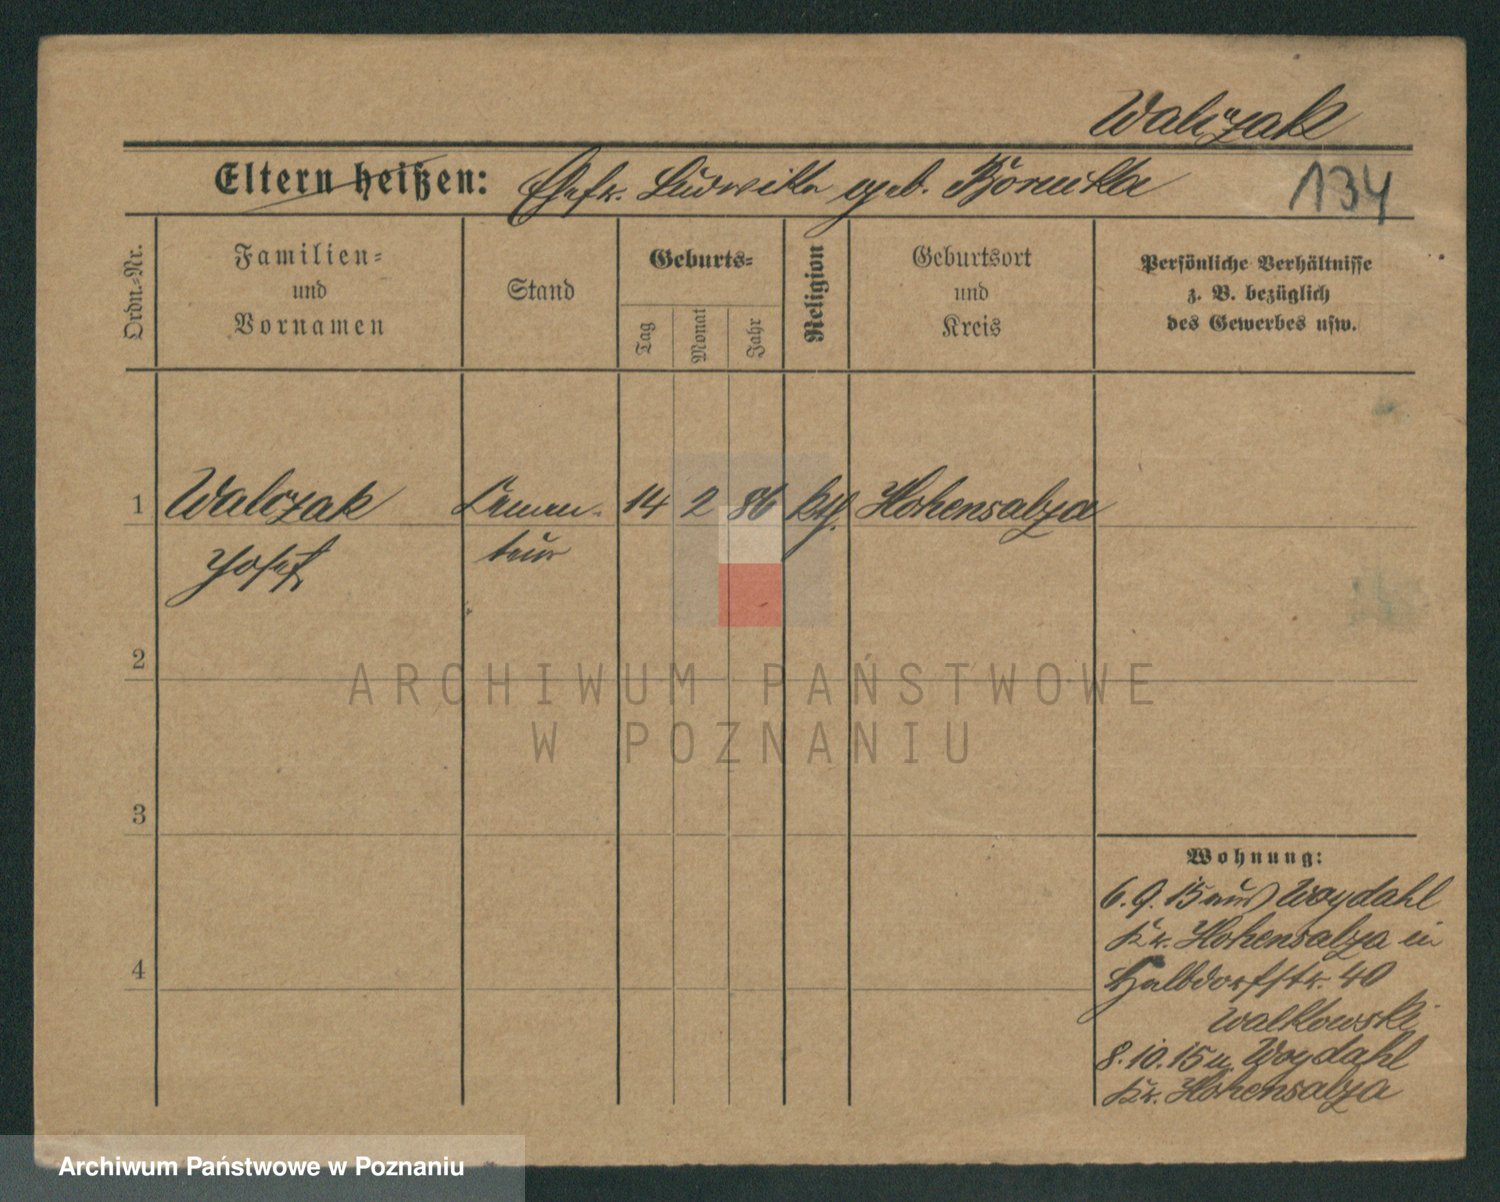 Walczak
Eltern heißen: Ehefr. Ludwika geb.
134
Ordn.-Nr.
Familien-
und
Vornamen
Stand
Geburts-
Tag
Monat
Jahr
Religion
Geburtsort
und
Kreis
Persönliche Verhältnisse
z. B. bezüglich
des Gewerbes usw.
1 Walczak 14 2 86 kth. Hohensalza
Josef
2
3
4
ARCHIWUM PAŃSTWOWE
W POZNANIU
Wohnung:
6.9.15 aus Woydahl
Kr. Hohensalza in
Halbdorfstr. 40
Walkowski
8.10.15 n. Woydahl
Kr. Hohensalza
Archiwum Państwowe w Poznaniu